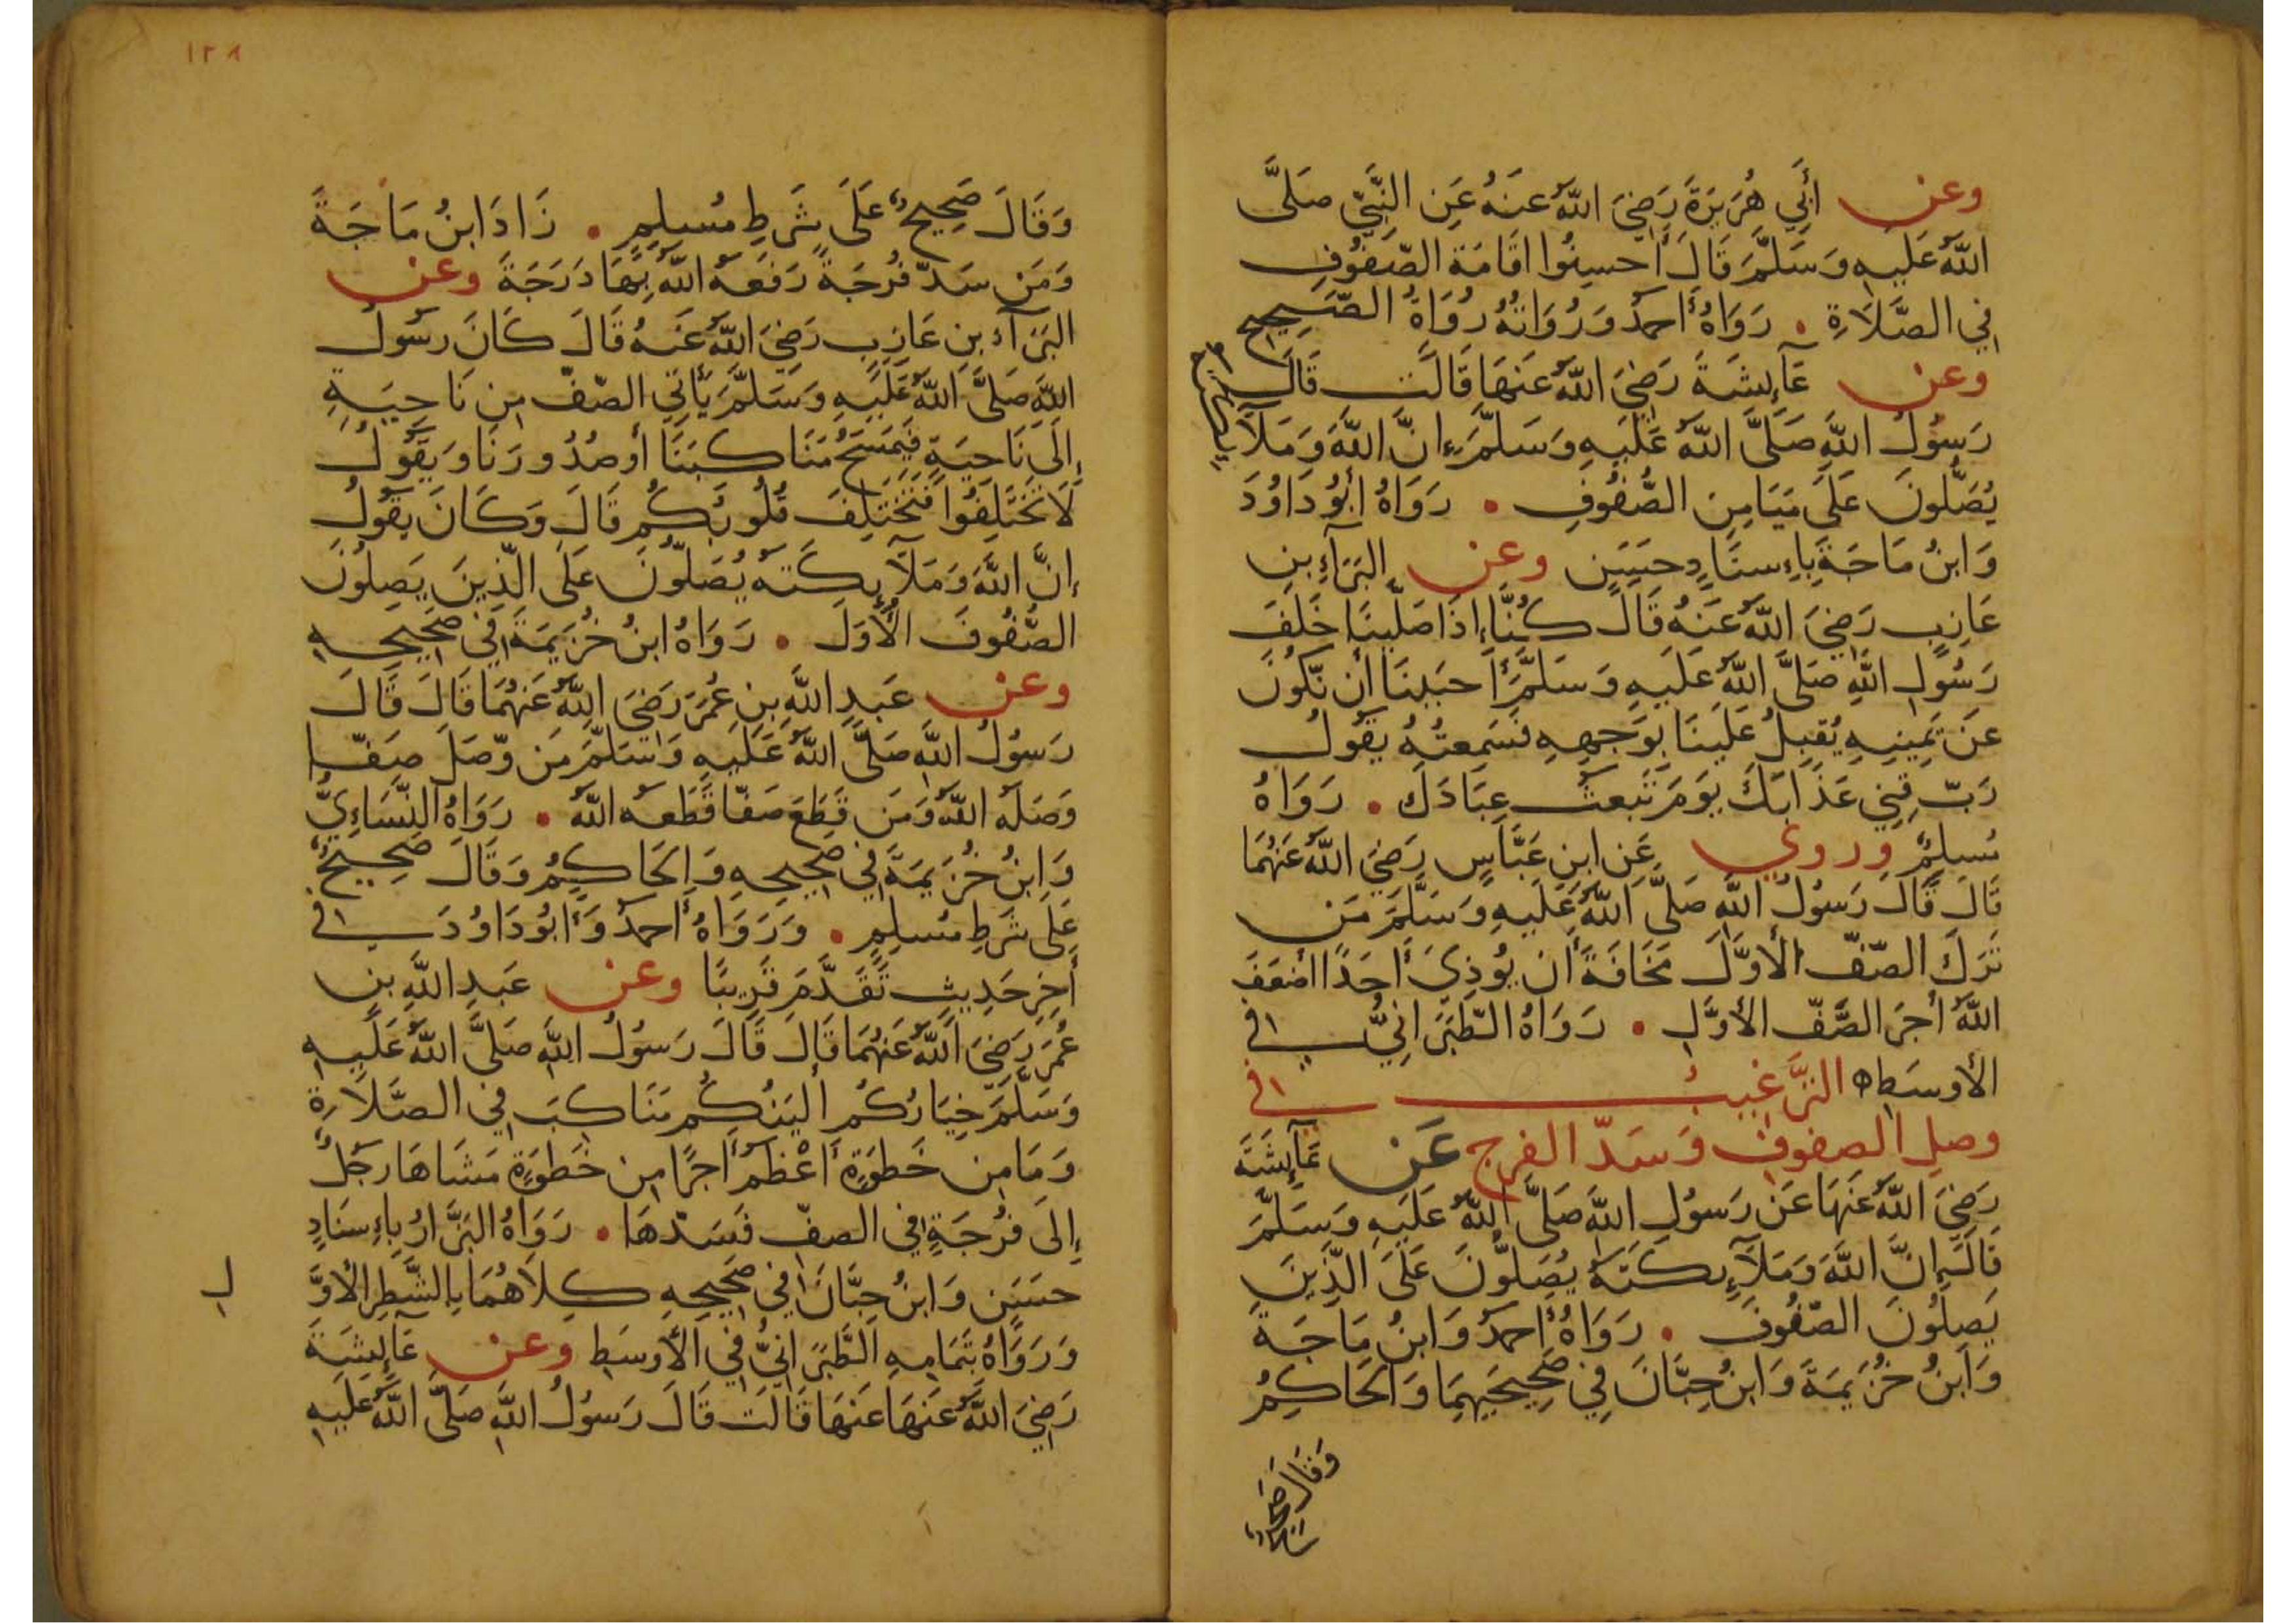 وعن أَبِي هُرَيرَةَ رَضِيَ اللَّهُ عَنهُ عَنِ النَّبِيِّ صَلَّى
اللَّهُ عَلَيهِ وَسَلَّمَ قَالَ أَحسِنُوا اقَامَةَ الصُّفُوفِ
فِي الصَّلَاةِ . رَوَاهُ أَحمَدُ وَرُوَاتُهُ رُوَاةُ الصَّحِيحِ
وعن عَآئِشَةَ رَضِيَ اللَّهُ عَنهَا قَالَت قَالَ
رَسُولُ اللَّهِ صَلَّى اللَّهُ عَلَيهِ وَسَلَّمَ إِنَّ اللَّهَ وَمَلَآئِكَتَهُ
يُصَلُّونَ عَلَى مَيَامِنِ الصُّفُوفِ . رَوَاهُ أَبُو دَاوُدَ
وَابنُ مَاجَةَ بِإِسنَادٍ حَسَنٍ وعن البَرَآءِ بنِ
عَازِبٍ رَضِيَ اللَّهُ عَنهُ قَالَ كُنَّا إِذَا صَلَّينَا خَلفَ
رَسُولِ اللَّهِ صَلَّى اللَّهُ عَلَيهِ وَسَلَّمَ أَحبَبنَا أَن نَّكُونَ
عَن يَمِينِهِ يُقبِلُ عَلَينَا بِوَجهِهِ فَسَمِعتُهُ يَقُولُ
رَبِّ قِنِي عَذَابَكَ يَومَ تَبعَثُ عِبَادَكَ . رَوَاهُ
مُسلِمٌ وروي عَنِ ابنِ عَبَّاسٍ رَضِيَ اللَّهُ عَنهُمَا
قَالَ قَالَ رَسُولُ اللَّهِ صَلَّى اللَّهُ عَلَيهِ وَسَلَّمَ مَن
تَرَكَ الصَّفَّ الأَوَّلَ مَخَافَةَ أَن يُؤذِيَ أَحَدًا أَضعَفَ
اللَّهُ أَجرَ الصَّفِّ الأَوَّلِ . رَوَاهُ الطَّبَرَانِيُّ فِي
الأَوسَطِ ه التَّرغِيبُ في
وصلِ الصفوفِ وَسَدِّ الفرجِ عَن عَآئِشَةَ
رَضِيَ اللَّهُ عَنهَا عَن رَسُولِ اللَّهِ صَلَّى اللَّهُ عَلَيهِ وَسَلَّمَ
قَالَ إِنَّ اللَّهَ وَمَلَآئِكَتَهُ يُصَلُّونَ عَلَى الَّذِينَ
يَصِلُونَ الصُّفُوفَ . رَوَاهُ أَحمَدُ وَابنُ مَاجَةَ
وَابنُ خُزَيمَةَ وَابنُ حِبَّانَ فِي صَحِيحَيهِمَا وَالحَاكِمُ
وَقَالَ صَحِيحٌ
١٢٨
وَقَالَ صَحِيحٌ عَلَى شَرطِ مُسلِمٍ . زَادَ ابنُ مَاجَةَ
وَمَن سَدَّ فُرجَةً رَفَعَهُ اللَّهُ بِهَا دَرَجَةً وعن
البَرَآءِ بنِ عَازِبٍ رَضِيَ اللَّهُ عَنهُ قَالَ كَانَ رَسُولُ
اللَّهِ صَلَّى اللَّهُ عَلَيهِ وَسَلَّمَ يَأتِي الصَّفَّ مِن نَاحِيَةٍ
إِلَى نَاحِيَةٍ فَيَمسَحُ مَنَاكِبَنَا أَو صُدُورَنَا وَيَقُولُ
لَا تَختَلِفُوا فَتَختَلِفَ قُلُوبُكُم قَالَ وَكَانَ يَقُولُ
إِنَّ اللَّهَ وَمَلَآئِكَتَهُ يُصَلُّونَ عَلَى الَّذِينَ يَصِلُونَ
الصُّفُوفَ الأُوَلَ . رَوَاهُ ابنُ خُزَيمَةَ فِي صَحِيحِهِ
وعن عَبدِ اللَّهِ بنِ عُمَرَ رَضِيَ اللَّهُ عَنهُمَا قَالَ قَالَ
رَسُولُ اللَّهِ صَلَّى اللَّهُ عَلَيهِ وَسَلَّمَ مَن وَّصَلَ صَفًّا
وَصَلَهُ اللَّهُ وَمَن قَطَعَ صَفًّا قَطَعَهُ اللَّهُ . رَوَاهُ النَّسَائِيُّ
وَابنُ خُزَيمَةَ فِي صَحِيحِهِ وَالحَاكِمُ وَقَالَ صَحِيحٌ
عَلَى شَرطِ مُسلِمٍ . وَرَوَاهُ أَحمَدُ وَأَبُو دَاوُدَ فِي
أَخِرِ حَدِيثٍ تَقَدَّمَ قَرِيبًا وعن عَبدِ اللَّهِ بنِ
عُمَرَ رَضِيَ اللَّهُ عَنهُمَا قَالَ قَالَ رَسُولُ اللَّهِ صَلَّى اللَّهُ عَلَيهِ
وَسَلَّمَ خِيَارُكُم أَليَنُكُم مَنَاكِبَ فِي الصَّلَاةِ
وَمَا مِن خَطوَةٍ أَعْظَمُ أَجرًا مِن خَطوَةٍ مَشَاهَا رَجُلٌ
إِلَى فُرجَةٍ فِي الصفِّ فَسَدَّهَا . رَوَاهُ البَزَّارُ بِإِسنَادٍ
حَسَنٍ وَابنُ حِبَّانَ فِي صَحِيحِهِ كِلَاهُمَا بِالشَّطرِ الأَوَّ
لِ
وَرَوَاهُ بِتَمَامِهِ الطَّبَرَانِيُّ فِي الأَوسَطِ وعن عَآئِشَةَ
رَضِيَ اللَّهُ عَنهَا عَنهَا قَالَت قَالَ رَسُولُ اللَّهِ صَلَّى اللَّهُ عَلَيهِ